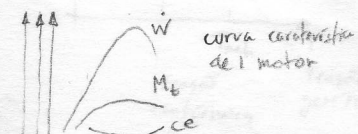 Ẇ
curva caraterística
de l motor
M_t
ce